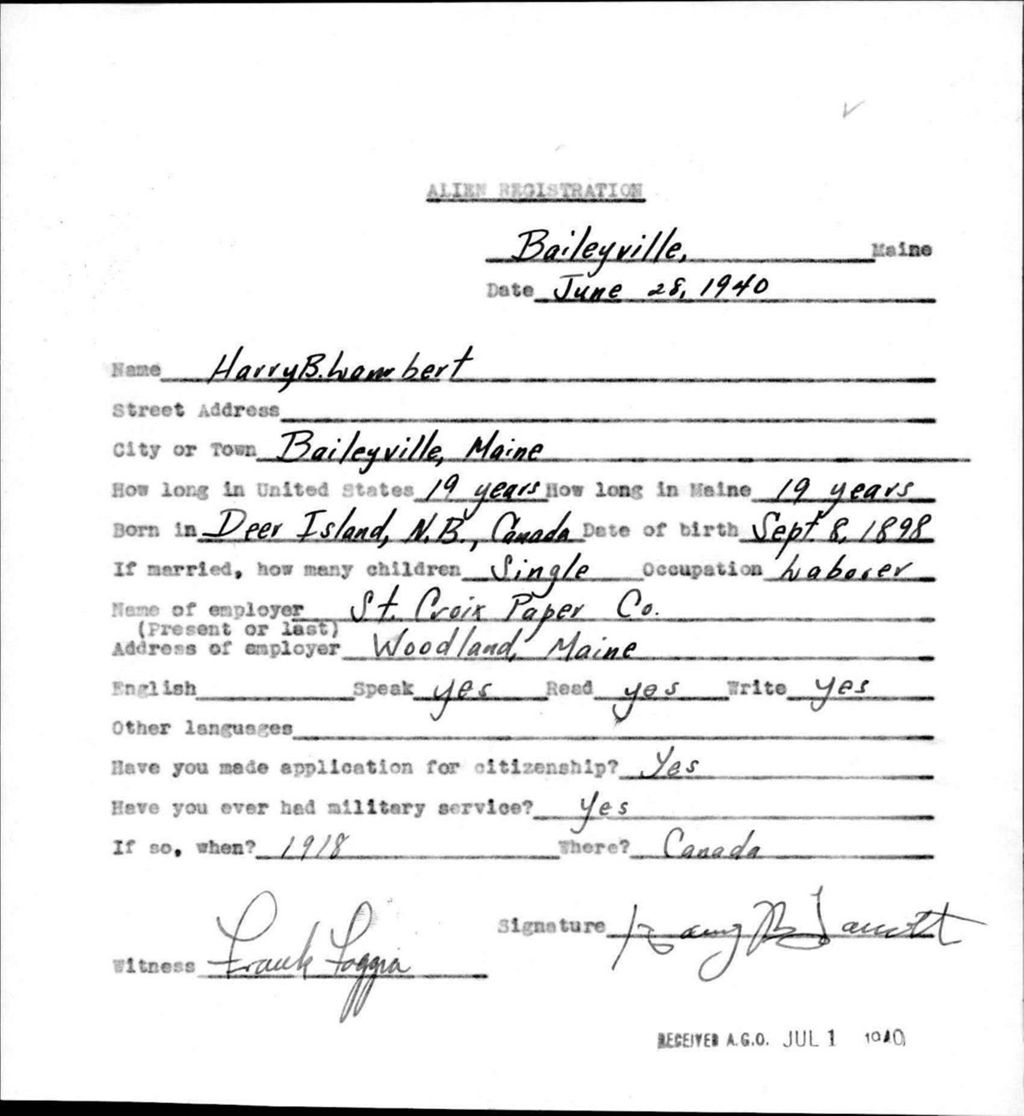 ALIEN REGISTRATION
Baileyville, Maine
Date June 28, 1940
Name Harry B. Lambert
Street Address
City or Town Baileyville, Maine
How long in United States 19 years How long in Maine 19 years
Born in Deer Island, N.B., Canada Date of birth Sept. 8, 1898
If married, how many children Single Occupation Laborer
Name of employer St. Croix Paper Co.
(Present or last)
Address of employer Woodland, Maine
English Speak yes Read yes Write yes
Other languages
Have you made application for citizenship? Yes
Have you ever had military service? Yes
If so, when? 1918 Where? Canada
Signature Harry B Lambert
Witness Frank Foggia
RECEIVED A.G.O. JUL 1 1940